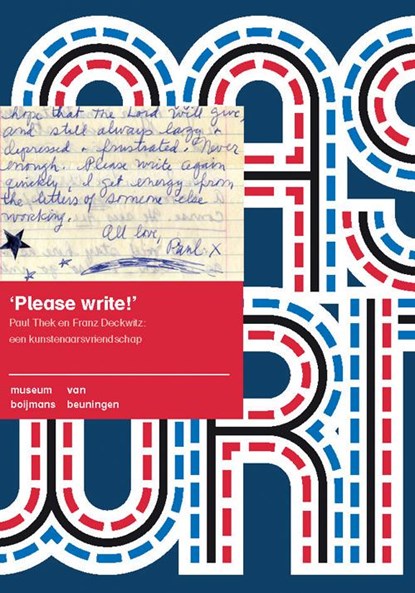 EAS
hope that the Lord will give,
and still always lazy +
depressed + frustrated. Never
enough. Please write again
quickly, I get energy from
the letters of someone else
working.
All love,
Paul X
'Please write!'
Paul Thek en Franz Deckwitz:
een kunstenaarsvriendschap
museum van
boijmans beuningen
WRIT